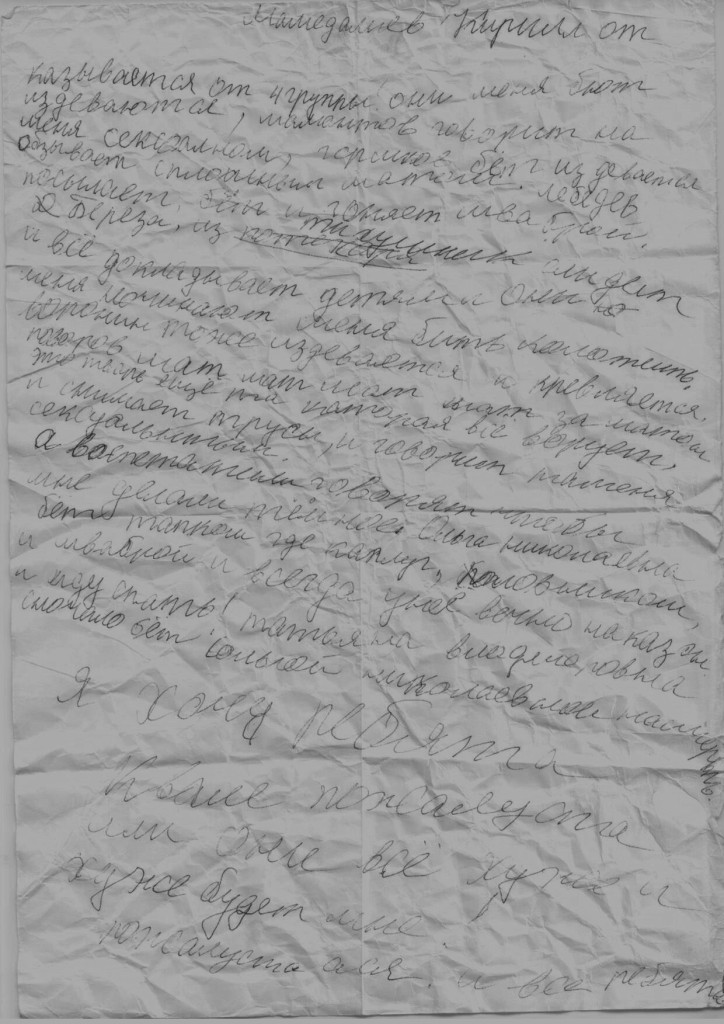 Мамедалиев Кирилл от
казывается от 4 группы они меня бют
издеваются, мамонтов говорит на
меня сексояном, горшков бёт издевается
обзывает сплошным матами. лебедев
посылает. бёт и гоняет шваброй.
2 Береза, из тихушник сыдет
и всё докладывает детям и они на
меня начинают меня бить колотить.
воронин тоже издевается и кревляется.
назаров мат мат мат мат за матом
это теперь ещё та каторая всё варует,
и снимает трусы, и говорит на меня
сексуальный.
а воспетатели говорят что бы
мне делали тёмное Ольга николаевна
бёт тапком где каблук, половником,
и шваброй и всегда у неё вечно наказан
и иду спать! татьяна владимировна
сможно бёт сольгой николаевной насмерть.
Я хочу ребята
К вам пожалуста
или они всё хуже и
хуже будет мне
пожалуста ася. и все ребята